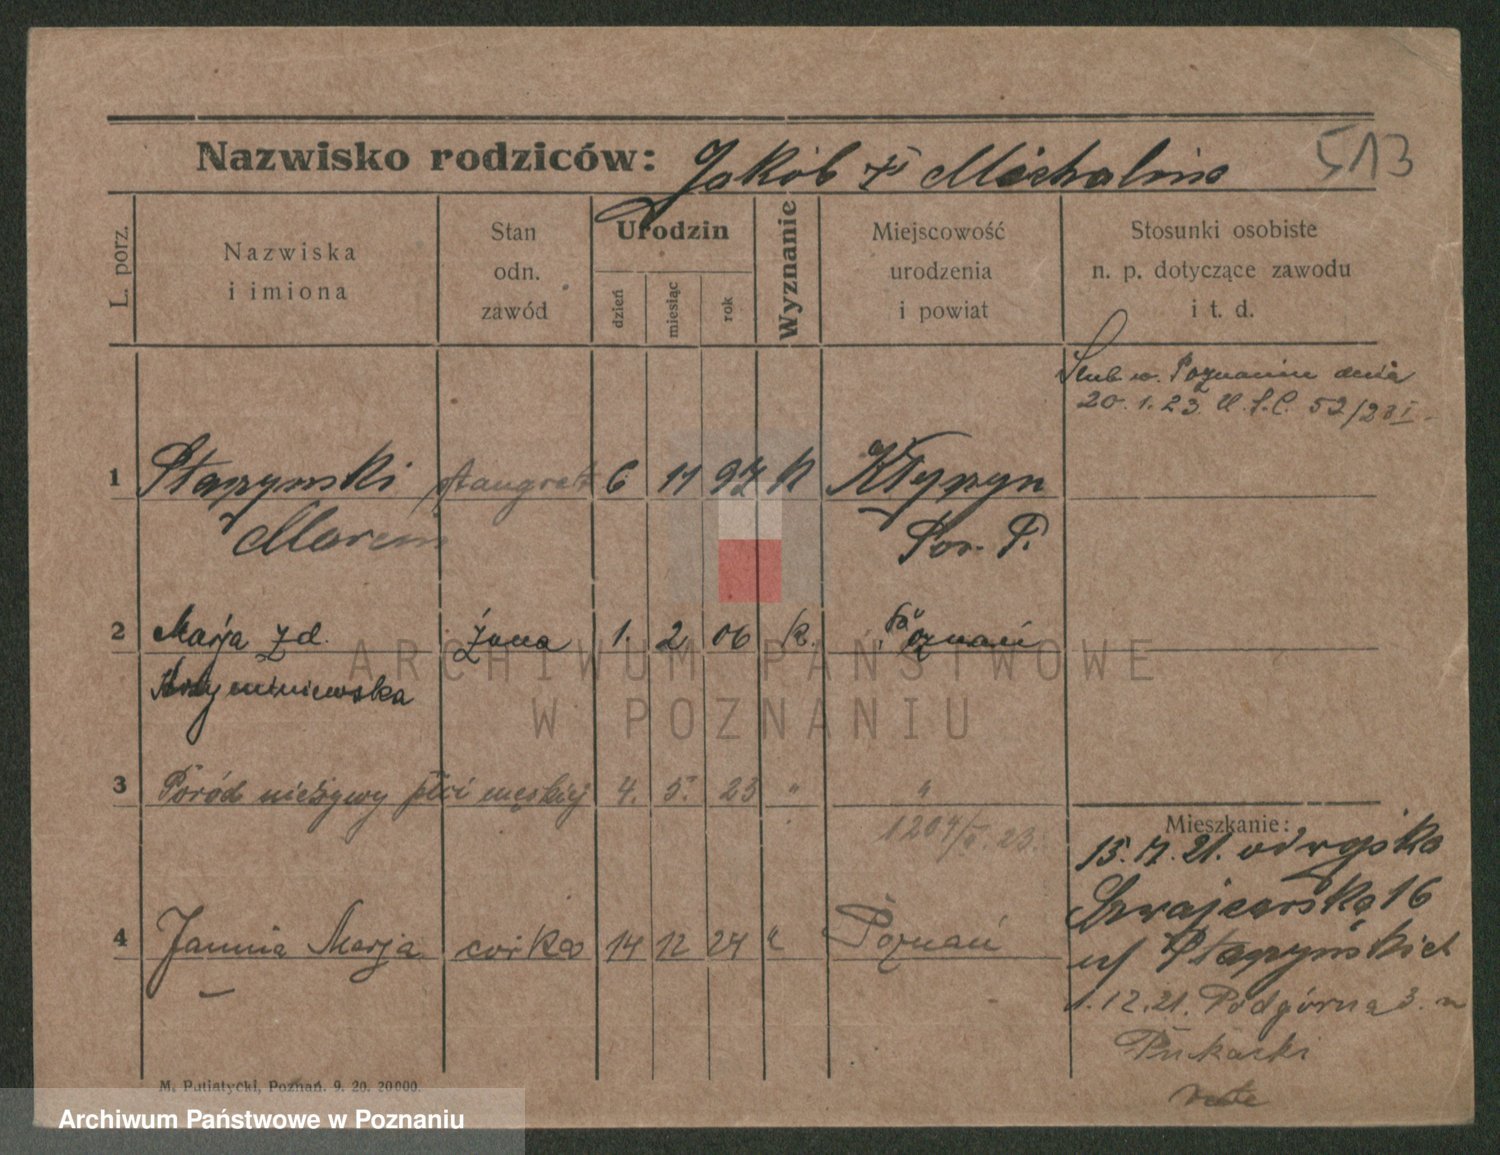 513
Nazwisko rodziców: Jakób i Michalina
L. porz.
Nazwiska
i imiona
Stan
odn.
zawód
Urodzin
dzień
miesiąc
rok
Wyznanie
Miejscowość
urodzenia
i powiat
Stosunki osobiste
n. p. dotyczące zawodu
i t. d.
Ślub w. Poznaniu dnia
20. 1. 23. U. S. C. 52/23 I
1 Stapyński 6 11 97 K
Marcin
2 Marja zd. żona 1. 2 06 K. Poznań
3 Poród nieżywy płci męskiej 4. 5. 23 " "
1204/V. 23.
4 Janina Marja córka 14 12 24 " Poznań
Mieszkanie:
Szwajcarska 16
u/ Stapyńskich
1. 12. 21. Podgórna 3. u
M. Putiatycki, Poznań. 9. 20. 20000.
ARCHIWUM PAŃSTWOWE
W POZNANIU
Archiwum Państwowe w Poznaniu